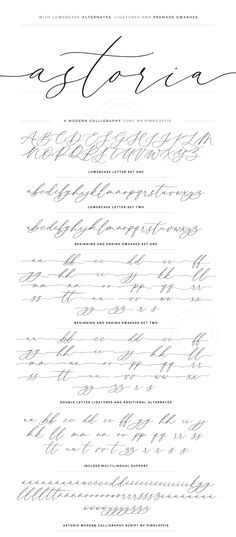 WITH LOWERCASE ALTERNATES, LIGATURES AND PREMADE SWASHES
astoria
A MODERN CALLIGRAPHY FONT BY PINKCOFFIE
ABCDEFGHIJKLM
NOPQRSTUVWXYZ
LOWERCASE LETTER SET ONE
abcdefghijklmnopqrstuvwxyz
LOWERCASE LETTER SET TWO
abcdefghijklmnopqrstuvwxyz
BEGINNING AND ENDING SWASHES SET ONE
aa bb cc dd ee ff
gg hh ii jj kk ll
mm nn oo pp qq rr
ss tt uu vv ww xx
yy zz r s
BEGINNING AND ENDING SWASHES SET TWO
aa bb cc dd ee ff
gg hh ii jj kk ll
mm nn oo pp qq rr
ss tt uu vv ww xx
yy zz r s
DOUBLE LETTER LIGATURES AND ADDITIONAL ALTERNATES
aa bb cc dd ee ff gg hh ii jj
kk ll mm nn oo pp qq rr ss
tt
INCLUDES MULTILINGUAL SUPPORT
ASTORIA MODERN CALLIGRAPHY SCRIPT BY PINKCOFFIE